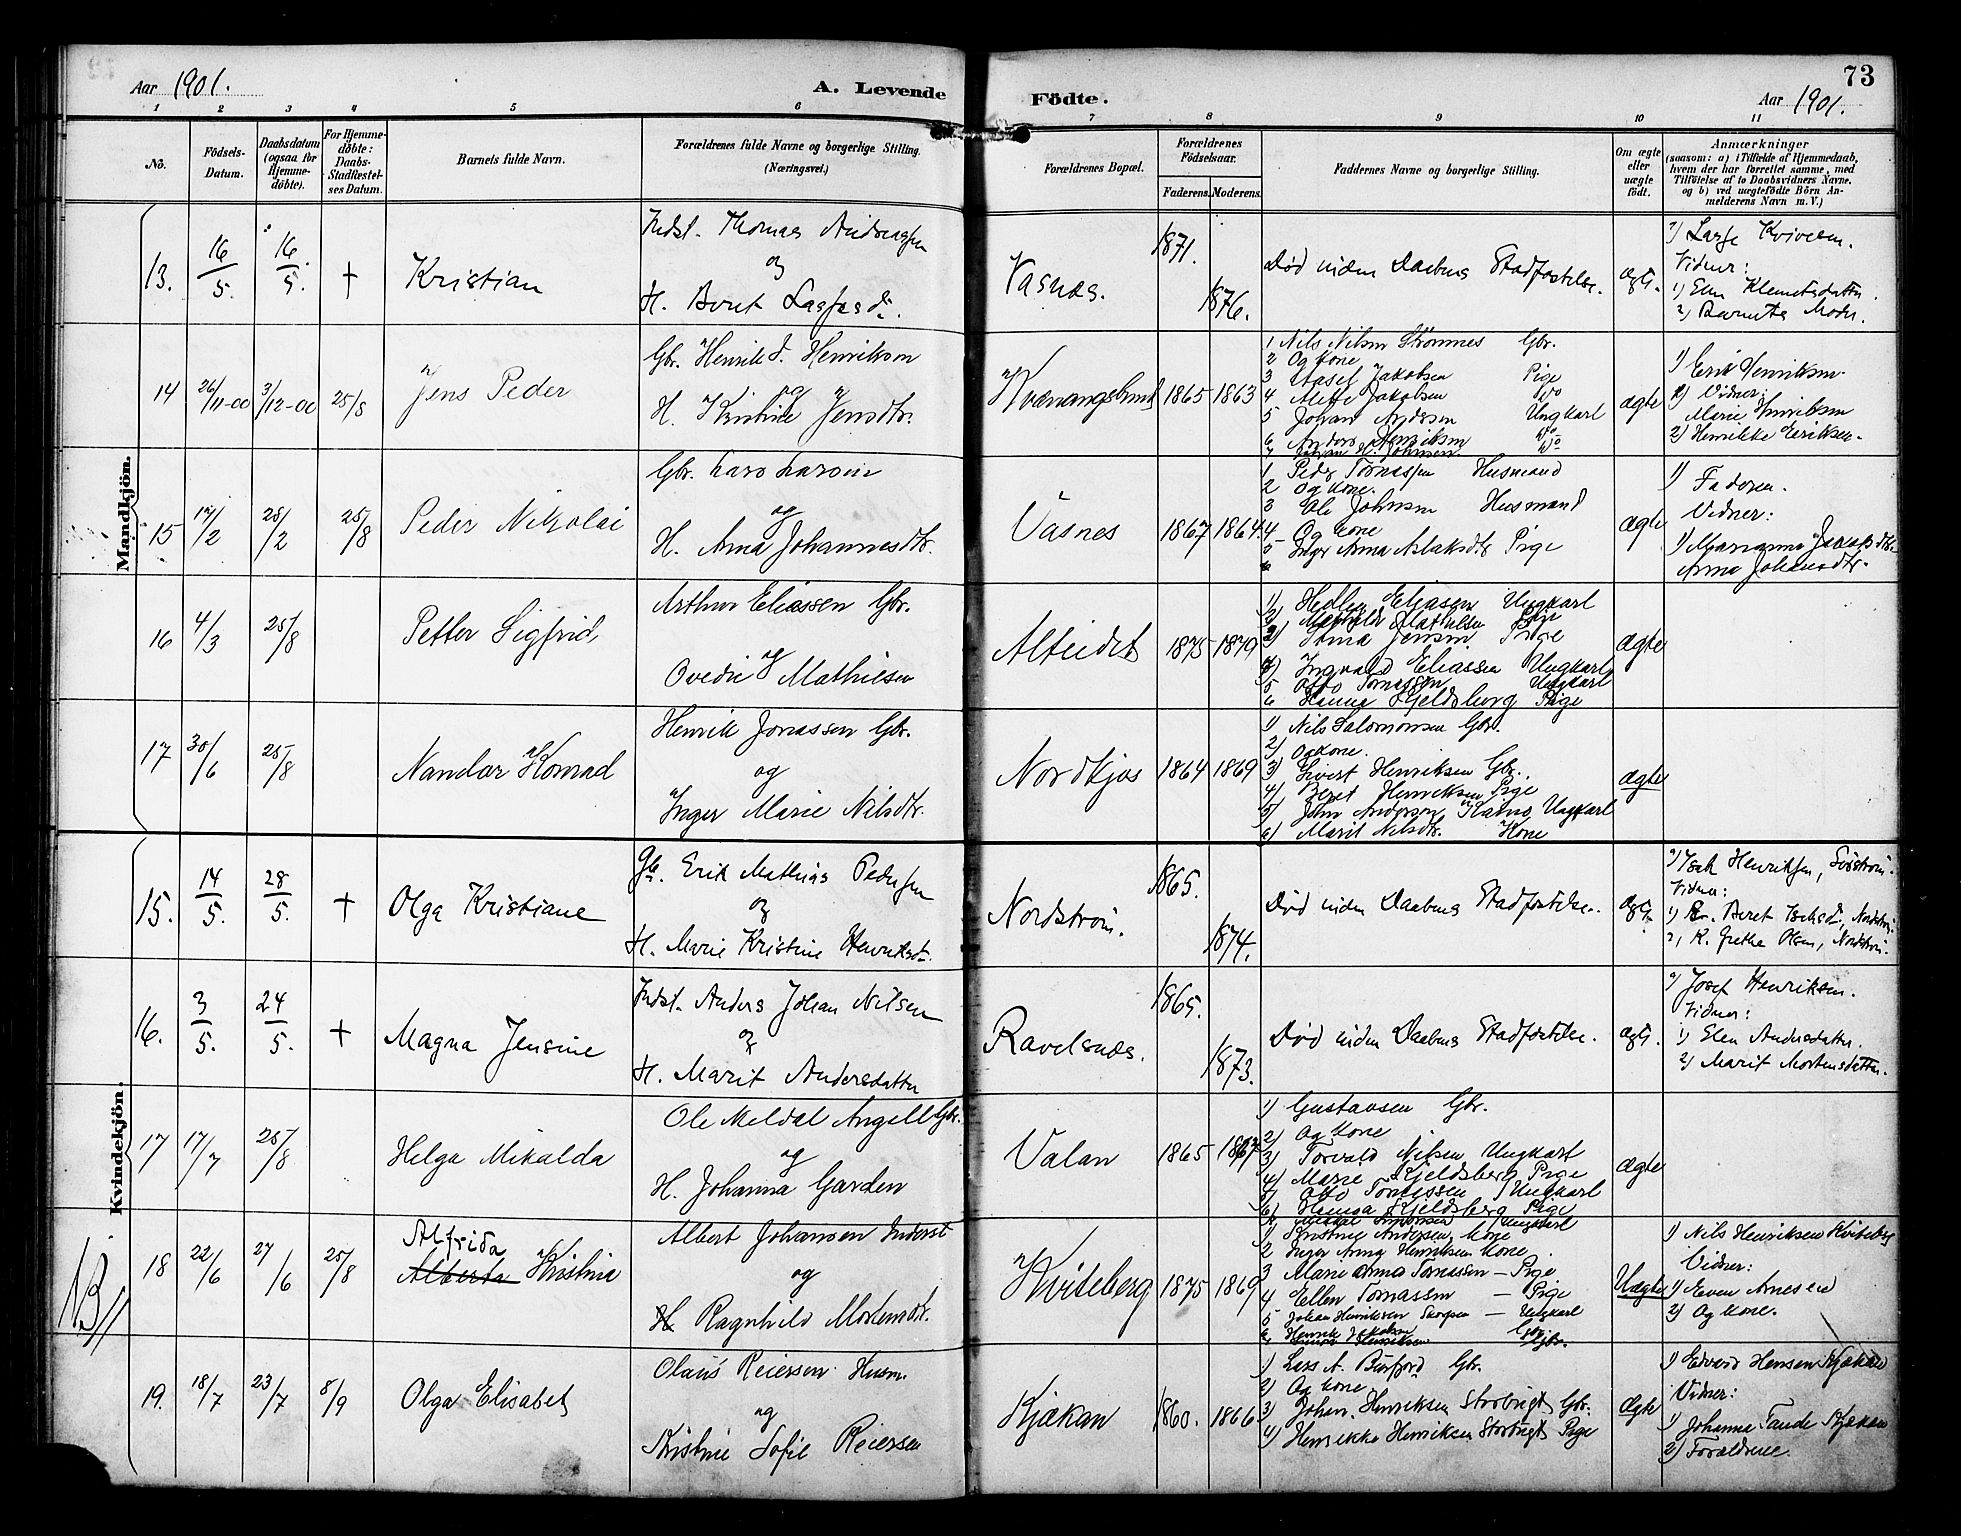 73
Aar 1901.
A. Levende
Födte.
Aar 1901.
1 2 3 4 5 6 7 8 9 10 11
Nö.
Födsels-
Datum.
Daabsdatum
(ogsaa for
Hjemme-
döbte).
For Hjemme-
döbte:
Daabs-
Stadfæstel-
ses Datum.
Barnets fulde Navn.
Forældrenes fulde Navne og borgerlige Stilling.
(Næringsvei.)
Forældrenes Bopæl.
Forældrenes
Födselsaar.
Faderens. Moderens.
Faddernes Navne og borgerlige Stilling.
Om ægte
eller
uægte
födt.
Anmærkninger
(saasom: a) i Tilfælde af Hjemmedaab,
hvem der har forrettet samme, med
Tilföielse af to Daabsvidners Navne.
og b) ved uægtefödte Börn An-
melderens Navn m. V.)
Mandkjön.
13. 16/5. 16/5. † Kristian
Indst. Thomas Andreassen
og
H. Beret Lassesd.
Vasnes.
1871.
1876.
Död inden Daabens Stadfæstelse.
ægt.
Vidner:
1) Elen Klemetsdatter.
2) Barnets Moder.
14 26/11-00 3/12-00 25/8 Jens Peder
Gbr. Henrik J. Henriksen
og
H. Kristine Jensdtr.
1865 1863
1 Nils Nilsen Strömnes Gbr.
2 Og Kone
3 Jakobsen Pige
4 Alette Jakobsen Do
5 Johan Andersen Ungkarl
6 Anders Henriksen Do
ægte
1) Erik Henriksen
Vidner:
Marie Henriksen
2) Henrikke Eriksen.
15 17/2 28/2 25/8 Peder Nikolai
Gbr. Lars Larsen
og
H. Anna Johannesdtr.
Vasnes
1867 1864.
1 Peder Tomassen Husmand
2 Og Kone.
3 Ole Johnsen Husmand
4 Og Kone
5 Inger Anna Aslaksdtr Pige
6
ægte
1) Faderen.
Vidner:
Anna Johansdtr.
16 4/3 25/8 Petter Sigfrid,
Arthur Eliassen Gbr.
og
Ovedie Mathilsen
Alteidet
1875 1879
1) Hedley Eliasen Ungkarl
2) Mathilsen Pige
3) Stina Jensen Pige
4) Ingvald Eliassen Ungkarl
5 Otto Tomassen Ungkarl
6 Hanna Kjeldsberg Pige
ægte
17 30/6 25/8 Nandor Konrad
Henrik Jonassen Gbr.
og
Inger Marie Nilsdtr.
Nordkjos
1864 1869
1) Nils Salomonsen Gbr.
2) Og Kone.
3) Sivert Henriksen Gbr.
4) Beret Henriksen Pige
5) John Andersen Ungkarl
6) Marit Nilsdtr. Kone
ægte
Kvindekjön.
15. 14/5. 28/5. † Olga Kristiane
Gbr. Erik Mathias Pedersen
og
H. Marie Kristine Henriksdtr.
Nordström.
1865.
1874.
Död inden Daabens Stadfæstelse.
ægt.
Isak Henriksen,
Vidner:
1) Beret Isaksd., Nordström
2) K. Grethe Olsen, Nordström.
16. 3/5. 24/5. † Magna Jensine
Indst. Anders Johan Nilsen
og
H. Marit Andersdatter
Ravelsnes.
1865.
1873.
Död inden Daabens Stadfæstelse.
ægt.
Josef Henriksen.
Vidner:
1) Elen Andersdatter.
2) Marit Mortensdatter.
17 17/7 25/8 Helga Mikalda
Ole Meldal Angell Gbr.
og
H. Johanna Garden
Valan
1865
1) Gustavsen Gbr.
2) Og Kone
3) Torvald Nilsen Ungkarl
4) Marie Kjeldsberg Pige
5) Otto Tomassen Ungkarl
6) Hanna Kjeldsberg Pige
ægte
NB//
18 22/6 27/6 25/8 Alfrida
Alberta Kristina
Albert Johansen Inderst
og
H Ragnhild Mortensdtr.
Kviteberg
1875 1869
1) Kristine Andersen Kone
2 Inger Anna Henriksen Kone
3 Marie Anna Tomassen – Pige
4 Ellen Tomassen – Pige
5 Johan Henriksen – Ungkarl
6 Henrik Jakobsen Gbr.
Uægte
1) Nils Henriksen Kviteberg
Vidner:
1) Even Arnesen
2) Og Kone.
19. 18/7 23/7 8/9 Olga Elisabet
Olaus Reiersen Husm.
og
Kristine Sofie Reiersen
Kjækan
1860. 1866
1) Lars A. Burfjord Gbr.
2) Og Kone
3) Johan Henriksen Storbugt Gbr.
4) Henrikke Henriksen Storbugt Pige
ægte
1) Edvard Hansen Kjækan
Vidner:
1) Johanna Tande Kjækan
2) Forældrene.